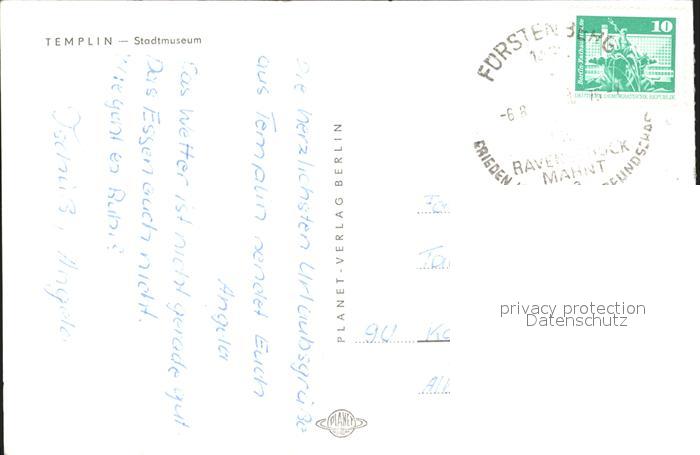 TEMPLIN — Stadtmuseum
Die herzlichsten Urlaubsgrüße
aus Templin sendet Euch
Angela
Das Wetter ist nicht gerade gut.
Das Essen auch nicht.
Wie geht es
Tschüß, Angela
PLANET-VERLAG BERLIN
PLANET
FÜRSTENBERG
-6.8
RAVENSBRÜCK
MAHNT
FRIEDEN
FREUNDSCHAF
10
DEUTSCHE DEMOKRATISCHE REPUBLIK
Fa
90 Ka
privacy protection
Datenschutz